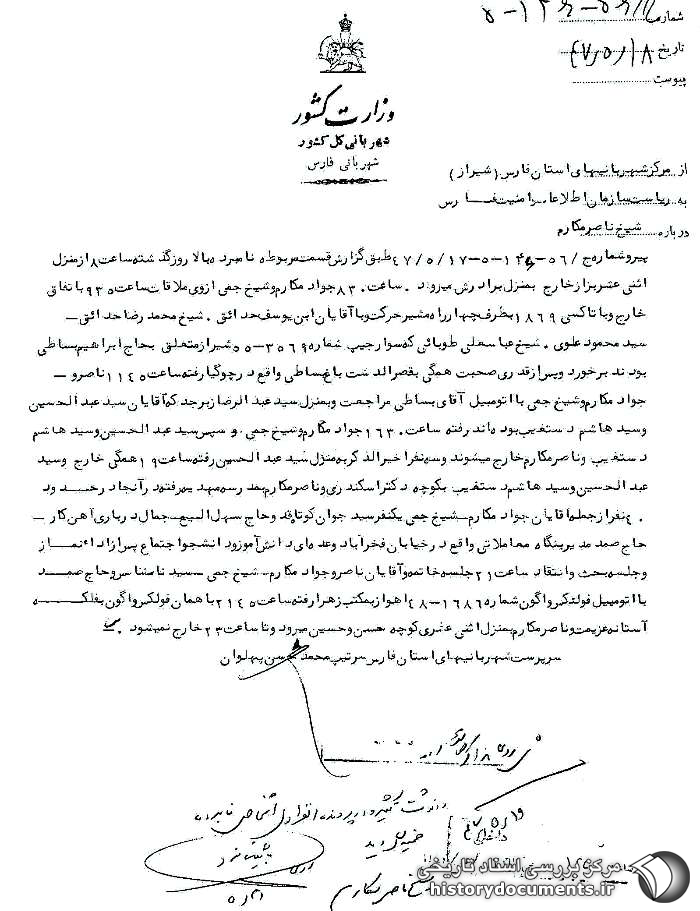 شماره
تاریخ ۴۷/۵/۱۸
پیوست
وزارت کشور
شهربانی کل کشور
شهربانی فارس
از مرکز شهربانیهای استان فارس (شیراز)
به ریاست سازمان اطلاعات و امنیت فارس
درباره شیخ ناصر مکارم
پیرو شماره ۵-۱۴۶-۰۵۶/ح ۴۷/۵/۱۷ طبق گزارش قسمت مربوطه نامبرده بالا روز گذشته ساعت ۸ از منزل
اثنی عشر بزار خارج بمنزل برادرش میرود. ساعت ۸۳۰ جواد مکارم و شیخ جمی از وی ملاقات ساعت ۹۳۵ باتفاق
خارج و با تاکسی ۱۸۶۹ بطرف چهارراه مشیر حرکت و با آقایان ابن یوسف حدائق. شیخ محمد رضا حدائق –
سید محمود علوی. شیخ عباسعلی طوبائی که سوار جیپ شماره ۳۵۶۹–۵۵ شیراز متعلق بحاج ابراهیم بساطی
بودند برخورد و پس از قدری صحبت همگی بقصر الدشت باغ بساطی واقع در چوگیا رفته ساعت ۱۱۴۵ ناصر و –
جواد مکارم و شیخ جمی با اتومبیل آقای بساطی مراجعت و بمنزل سید عبد الرضا زبرجد که آقایان سید عبد الحسین
و سید هاشم دستغیب بوده اند رفته ساعت ۱۶۳۰ جواد مکارم و شیخ جمی. و سپس سید عبد الحسین و سید هاشم
دستغیب و ناصر مکارم خارج میشوند و سه نفر اخیر الذکر به منزل سید عبد الحسین رفته ساعت ۱۹ همگی خارج و سید
عبد الحسین و سید هاشم دستغیب بکوچه دکتر اسکندری و ناصر مکارم بمدرسه مهدیه رفته در آنجا در حدود
۴۰ نفر از جمله آقایان جواد مکارم – شیخ جمی یکنفر سید جوان کوتاه قد و حاج سهل البیع – جمال درباری آهن کار –
حاج صمد مدیر بنگاه معاملاتی واقع در خیابان فخرآباد و عده ای دانش آموز و دانشجو اجتماع پس از اداء نماز
و جلسه بحث و انتقاد ساعت ۲۱ جلسه خاتمه و آقایان ناصر و جواد مکارم – شیخ جمی – سید ناشناس و حاج صمد
با اتومبیل فولکس واگون شماره ۱۶۸۶–۴۸ اهواز بمکتب زهرا رفته ساعت ۲۱۴۵ با همان فولکس واگون بفلکه
آستانه عزیمت و ناصر مکارم بمنزل اثنی عشری کوچه حسن و حسین میرود و تا ساعت ۲۳ خارج نمیشود.
سرپرست شهربانیهای استان فارس سرتیپ محمد حسن پهلوان
شیخ ناصر مکارم
مرکز بررسی اسناد تاریخی
historydocuments.ir